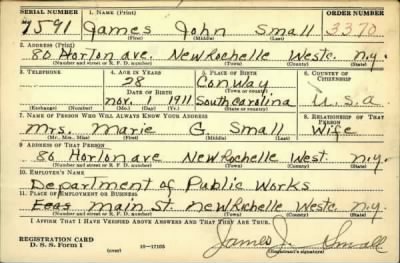 SERIAL NUMBER 1. NAME (Print) ORDER NUMBER
7591 James John Small 3370
(First) (Middle) (Last)
2. ADDRESS (Print)
80 Horton ave. New Rochelle Westc. N.y.
(Number and street or R. F. D. number) (Town) (County) (State)
3. TELEPHONE 4. AGE IN YEARS 5. PLACE OF BIRTH 6. COUNTRY OF CITIZENSHIP
28 Conway
(Town or county)
DATE OF BIRTH
nov. 1911 South carolina U.S.a
(Exchange) (Number) (Mo.) (Day) (Yr.) (State or country)
7. NAME OF PERSON WHO WILL ALWAYS KNOW YOUR ADDRESS 8. RELATIONSHIP OF THAT PERSON
Mrs. Marie G Small Wife
(Mr., Mrs., Miss) (First) (Middle) (Last)
9. ADDRESS OF THAT PERSON
80 Horton ave New Rochelle West. N.y.
(Number and street or R. F. D. number) (Town) (County) (State)
10. EMPLOYER'S NAME
Department of Public Works
11. PLACE OF EMPLOYMENT OR BUSINESS
main St. New Rochelle Westc. N.y.
(Number and street or R. F. D. number) (Town) (County) (State)
I AFFIRM THAT I HAVE VERIFIED ABOVE ANSWERS AND THAT THEY ARE TRUE.
REGISTRATION CARD
D. S. S. Form 1 (over) 16-17105
James J. Small
(Registrant's signature)